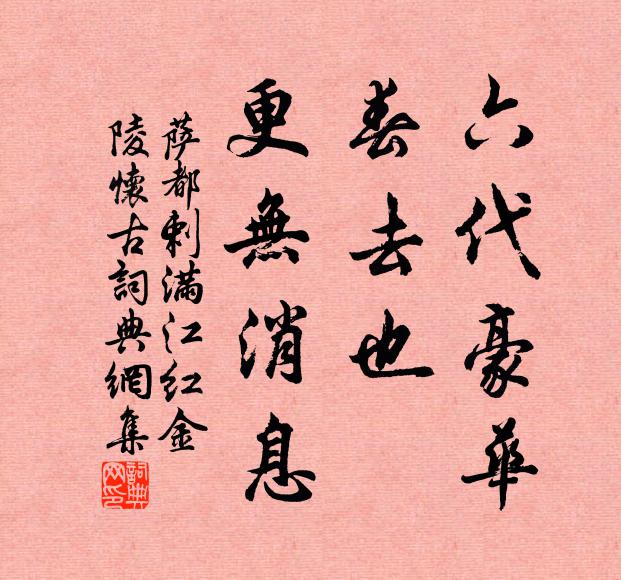 六代豪華
春去也
更無消息
薩都剌满江红金
陵懷古詞典網集
詞典
网印